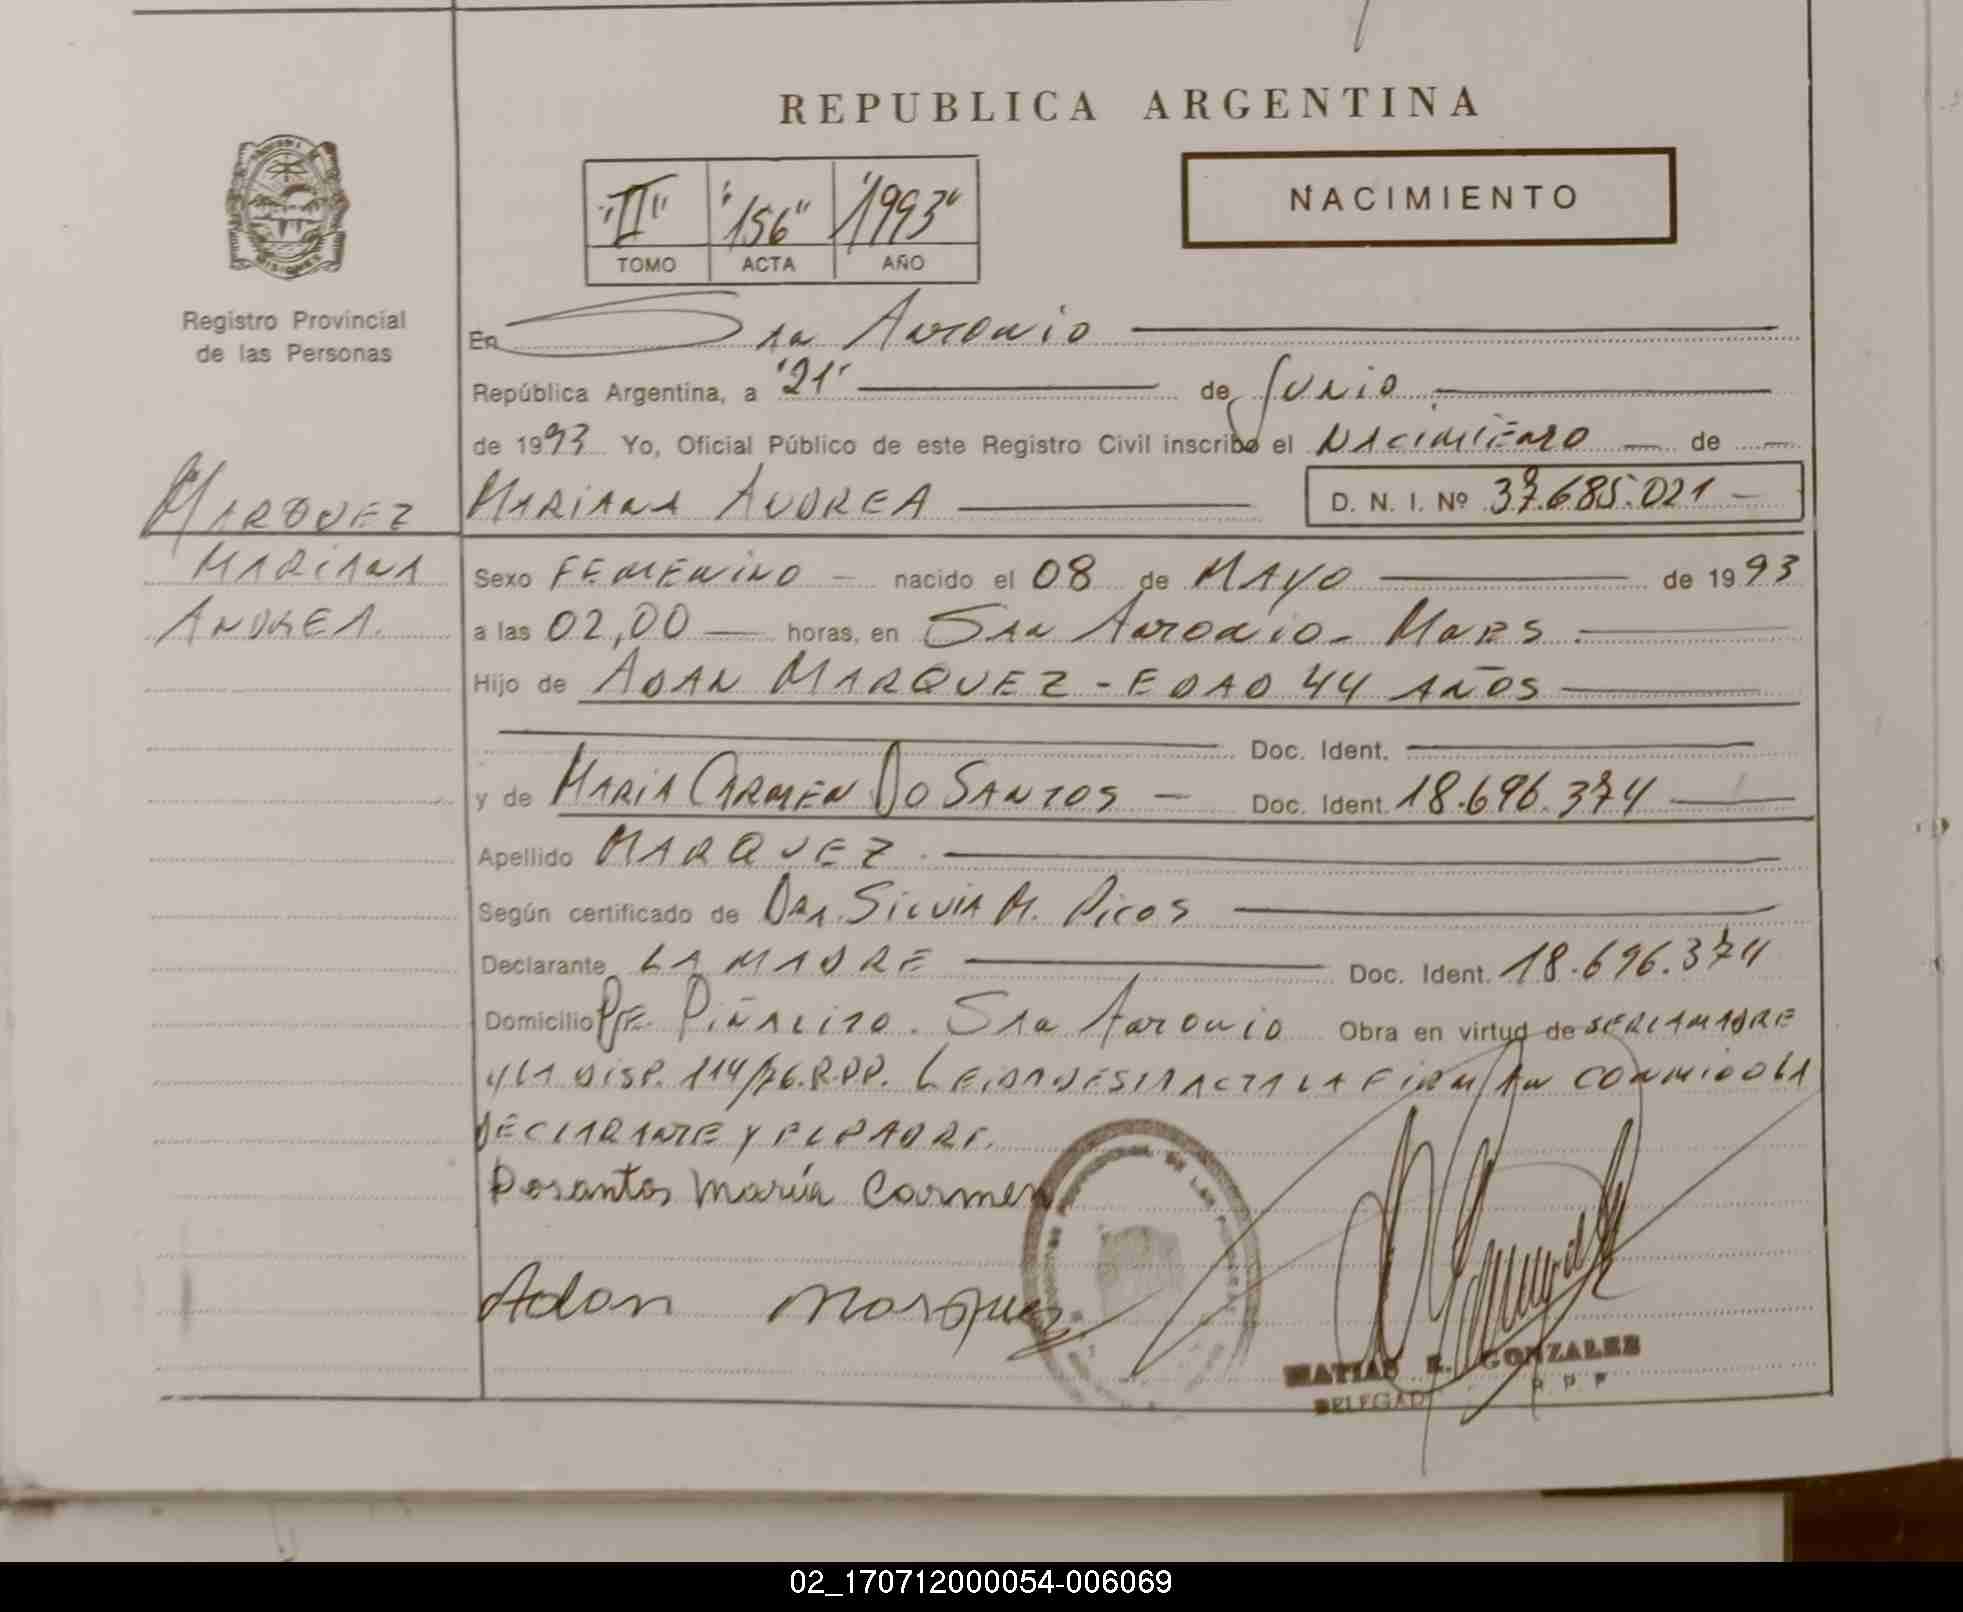 REPUBLICA ARGENTINA
"II" "156" "1993"
TOMO ACTA AÑO
NACIMIENTO
MISIONES
Registro Provincial
de las Personas
MARQUEZ
MARIANA
ANDREA.
En San Antonio
República Argentina, a "21" de Junio
de 1993 Yo, Oficial Público de este Registro Civil inscribo el NACIMIENTO de
MARIANA ANDREA D. N. I. Nº 37.685.021
Sexo FEMENINO nacido el 08 de MAYO de 1993
a las 02,00 horas, en San Antonio - Mnes
Hijo de ADAN MARQUEZ - EDAD 44 AÑOS
Doc. Ident.
y de MARIA CARMEN DO SANTOS Doc. Ident. 18.696.374
Apellido MARQUEZ
Según certificado de Dra. Silvia M. Picos
Declarante LA MADRE Doc. Ident. 18.696.374
Domicilio Pje. Piñalito. San Antonio Obra en virtud de SER LA MADRE
Y LA DISP. 114/76. R.P.P. LEIDA DESTA ACTA LA FIRMAN CONMIGO LA
DECLARANTE Y EL PADRE.
Dosantos María Carmen
Adan Marquez
MATIAS E. GONZALES
DELEGADO R P P
02_170712000054-006069